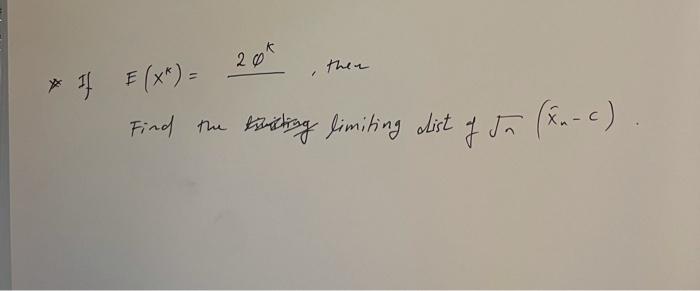 * If E(X^k) = 2φ^k / , then
Find the limiting dist of √n (x̄n - c) .